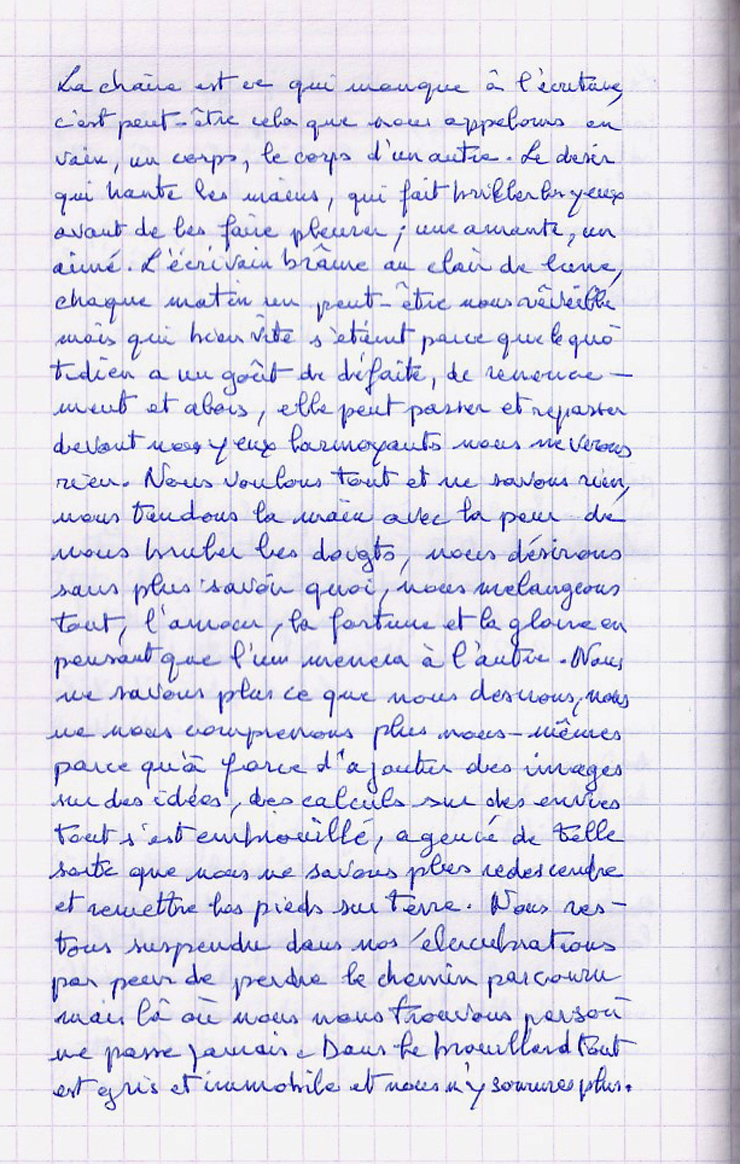 La chaire est ce qui manque à l'écriture,
c'est peut-être cela que nous appelons en
vain, un corps, le corps d'un autre. Le desir
qui hante les mains, qui fait briller les yeux
avant de les faire pleurer ; une amante, un
aimé. L'écrivain brâme au clair de lune,
chaque matin un peut-être nous réveille
mais qui bien vite s'éteint parce que le quo
tidien a un goût de défaite, de renonce-
ment et alors, elle peut passer et repasser
devant nos yeux larmoyants nous ne verons
rien. Nous voulons tout et ne savons rien,
nous tendons la main avec la peur de
nous bruler les doigts, nous désirons
sans plus savoir quoi, nous melangeons
tout, l'amour, la fortune et la gloire en
pensant que l'un menera à l'autre. Nous
ne savons plus ce que nous desirons, nous
ne nous comprenons plus nous-mêmes
parce qu'à force d'ajouter des images
sur des idées, des calculs sur des envies
tout s'est embrouillé, agencé de telle
sorte que nous ne savons plus redescendre
et remettre les pieds sur terre. Nous res-
tons suspendu dans nos élucubrations
par peur de perdre le chemin parcouru
mais là où nous nous trouvons person
ne passe jamais. Dans le brouillard tout
est gris et immobile et nous n'y sommes plus.